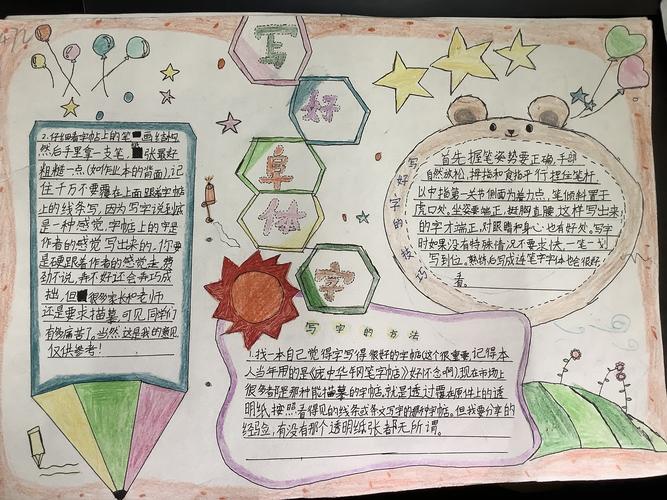 写
好
章
体
字
写好字的技巧
首先握笔姿势要正确,手部
自然放松,拇指和食指平行捏住笔杆,
以中指第一关节侧面为着力点,笔倾斜置于
虎口处。坐姿要端正,挺胸直腰,这样写出来
的字才端正,对眼睛和身心也有好处。写字
时如果没有特殊情况不要求快,一笔一划
写到位。熟练后写成连笔字字体也会很好
看。
写字的方法
1.找一本自己觉得字写得很好的字帖(这个很重要,记得本
人当年用的是《庞中华钢笔字帖》好怀念啊),现在市场上
很多都是那种能描摹的字帖,就是透过覆在原件上的透
明纸,按照看得见的线条或条文写字的那种字帖。但我要分享的
经验,有没有那个透明纸张都无所谓。
2.仔细看字帖上的笔画结构
然后手里拿一支笔,张最好
粗糙一点,(如作业本的背面),记
住千万不要覆在上面跟着字帖
上的线条写,因为写字说到底
是一种感觉,字帖上的字是
作者的感觉写出来的,你要
是硬跟着作者的感觉走,费
劲不说,弄不好还会弄巧成
拙,但很多家长和老师
还是要求描摹,可见同学们
有多痛苦了。当然,这是我的意见
仅供参考!